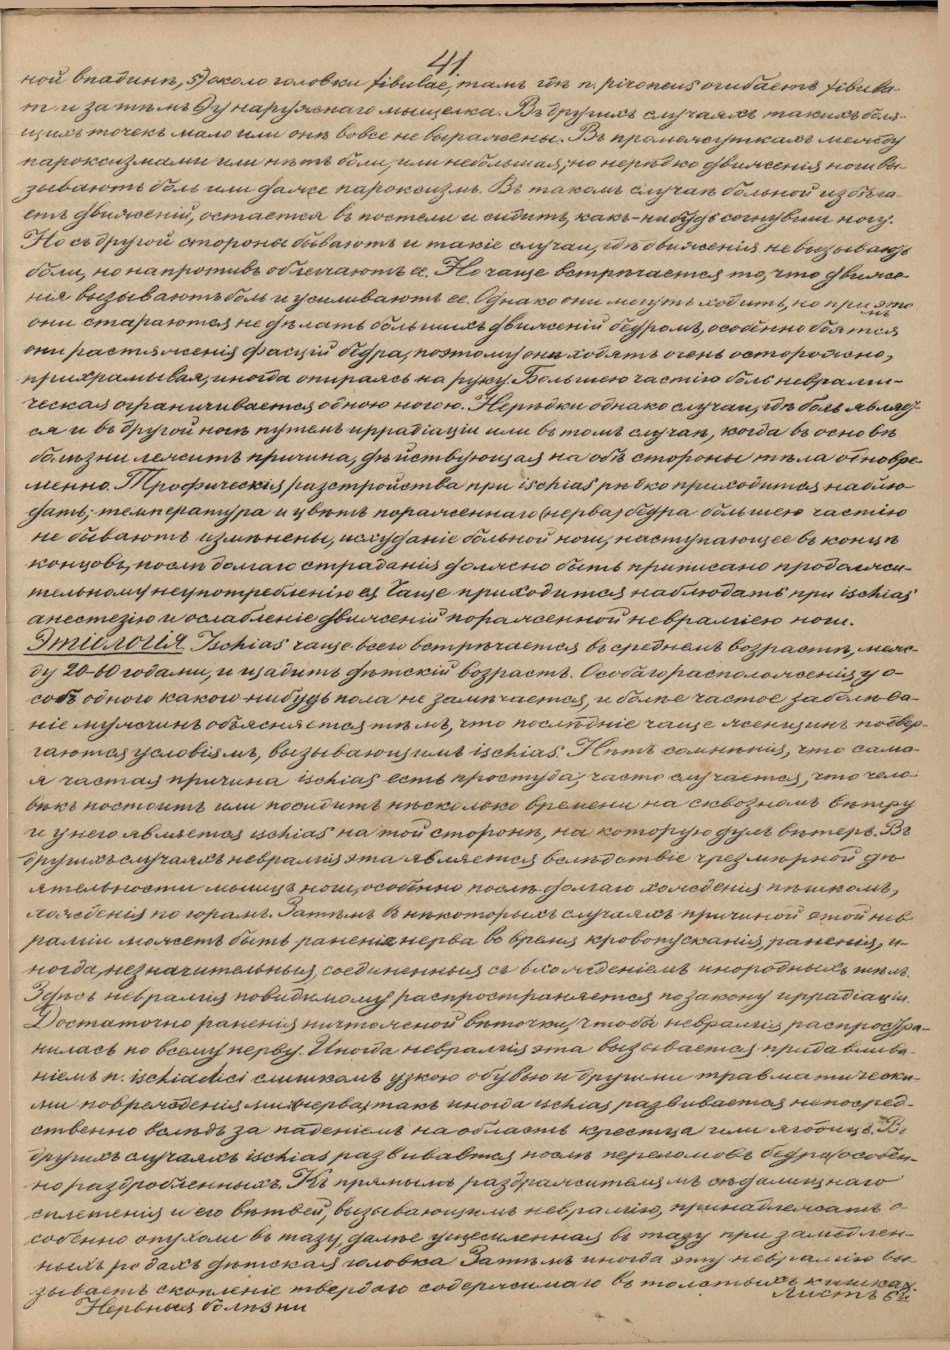 41
ной впадинѣ, 5) около головки fibulae, тамъ гдѣ n. pironeus огибаетъ fibula-
m и затѣмъ 6) у наружнаго мыщелка. Въ другихъ случаяхъ такихъ боля-
щихъ точекъ мало или онѣ вовсе не выражены. Въ промежуткахъ между
пароксизмами или нѣтъ боли, или небольшая; но нерѣдко движенія ноги вы-
зываютъ боль или даже пароксизмъ. Въ такомъ случаѣ больной избѣга-
етъ движеній, остается въ постели и сидитъ, какъ-нибудь согнувши ногу.
Но съ другой стороны бываютъ и такіе случаи, гдѣ движенія не вызываютъ
боли, но напротивъ облегчаютъ ее. Но чаще встрѣчается то, что движе-
нія вызываютъ боль и усиливаютъ ее. Однако они могутъ ходить, но при этомъ
они стараются не дѣлать большихъ движеній бедромъ, особенно боятся
они растяженія фасцій бедра, поэтому они ходятъ очень осторожно,
прихрамывая, иногда опираясь на руку. Большею частію боль невралги-
ческая ограничивается одною ногою. Нерѣдки однако случаи, гдѣ боль являет-
ся и въ другой ногѣ путемъ иррадіаціи или въ томъ случаѣ, когда въ основѣ
болѣзни лежитъ причина, дѣйствующая на обѣ стороны тѣла одновре-
менно. Трофическія разстройства при ischias рѣдко приходится наблю-
дать; температура и цвѣтъ пораженнаго (нерва) бедра большею частію
не бываютъ измѣнены, исхуданіе больной ноги, наступающее въ концѣ
концовъ, послѣ долгаго страданія должно быть приписано продолжи-
тельному неупотребленію ея. Чаще приходится наблюдать при ischias
анестезію и ослабленіе движеній пораженной невралгіею ноги.
Этіологія. Ischias чаще всего встрѣчается въ среднемъ возрастѣ, меж-
ду 20-60 годами, и щадитъ дѣтскій возрастъ. Особаго расположенія у о-
собъ одного какого-нибудь пола не замѣчается, и болѣе частое заболѣва-
ніе мужчинъ объясняется тѣмъ, что послѣдніе чаще женщинъ подвер-
гаются условіямъ, вызывающимъ ischias. Нѣтъ сомнѣнія, что сама-
я частая причина ischias есть простуда; часто случается, что чело-
вѣкъ постоитъ или посидитъ нѣсколько времени на сквозномъ вѣтру
и у него является ischias на той сторонѣ, на которую дулъ вѣтеръ. Въ
другихъ случаяхъ невралгія эта является вслѣдствіе чрезмѣрной дѣ-
ятельности мышцъ ноги, особенно послѣ долгаго хожденія пѣшкомъ,
хожденія по горамъ. Затѣмъ въ нѣкоторыхъ случаяхъ причиной этой нев-
ралгіи можетъ быть раненіе нерва во время кровопусканія, раненія, и-
ногда, незначительныя, соединенныя съ вхожденіемъ инородныхъ тѣлъ.
Здѣсь невралгія повидимому распространяется по закону иррадіаціи.
Достаточно раненія ничтожной вѣточки, чтобы невралгія распростра-
нилась по всему нерву. Иногда невралгія эта вызывается придавлива-
ніемъ n. ischiadici слишкомъ узкою обувью и другими травматически-
ми поврежденіями нерва; такъ иногда ischias развивается непосред-
ственно вслѣдъ за паденіемъ на область крестца или ягодицъ. Въ
другихъ случаяхъ ischias развивается послѣ переломовъ бедра, особен-
но раздробленныхъ. Къ прямымъ раздражителямъ сѣдалищнаго
сплетенія и его вѣтвей, вызывающимъ невралгію, принадлежатъ о-
собенно опухоли въ тазу, далѣе ущемленная въ тазу при замедлен-
ныхъ родахъ дѣтская головка. Затѣмъ иногда эту невралгію вы-
зываетъ скопленіе твердаго содержимаго въ толстыхъ кишкахъ.
Нервныя болѣзни
Листъ 6й